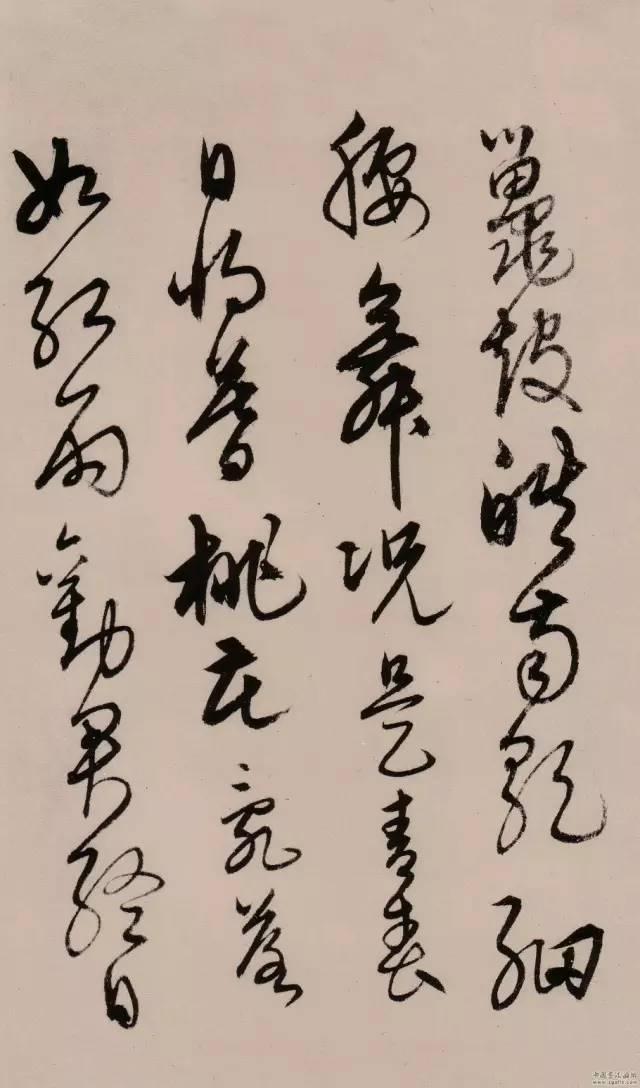 鼉鼓皓齒歌細
腰舞況是青春
日將暮桃花亂落
如紅雨勸君終日